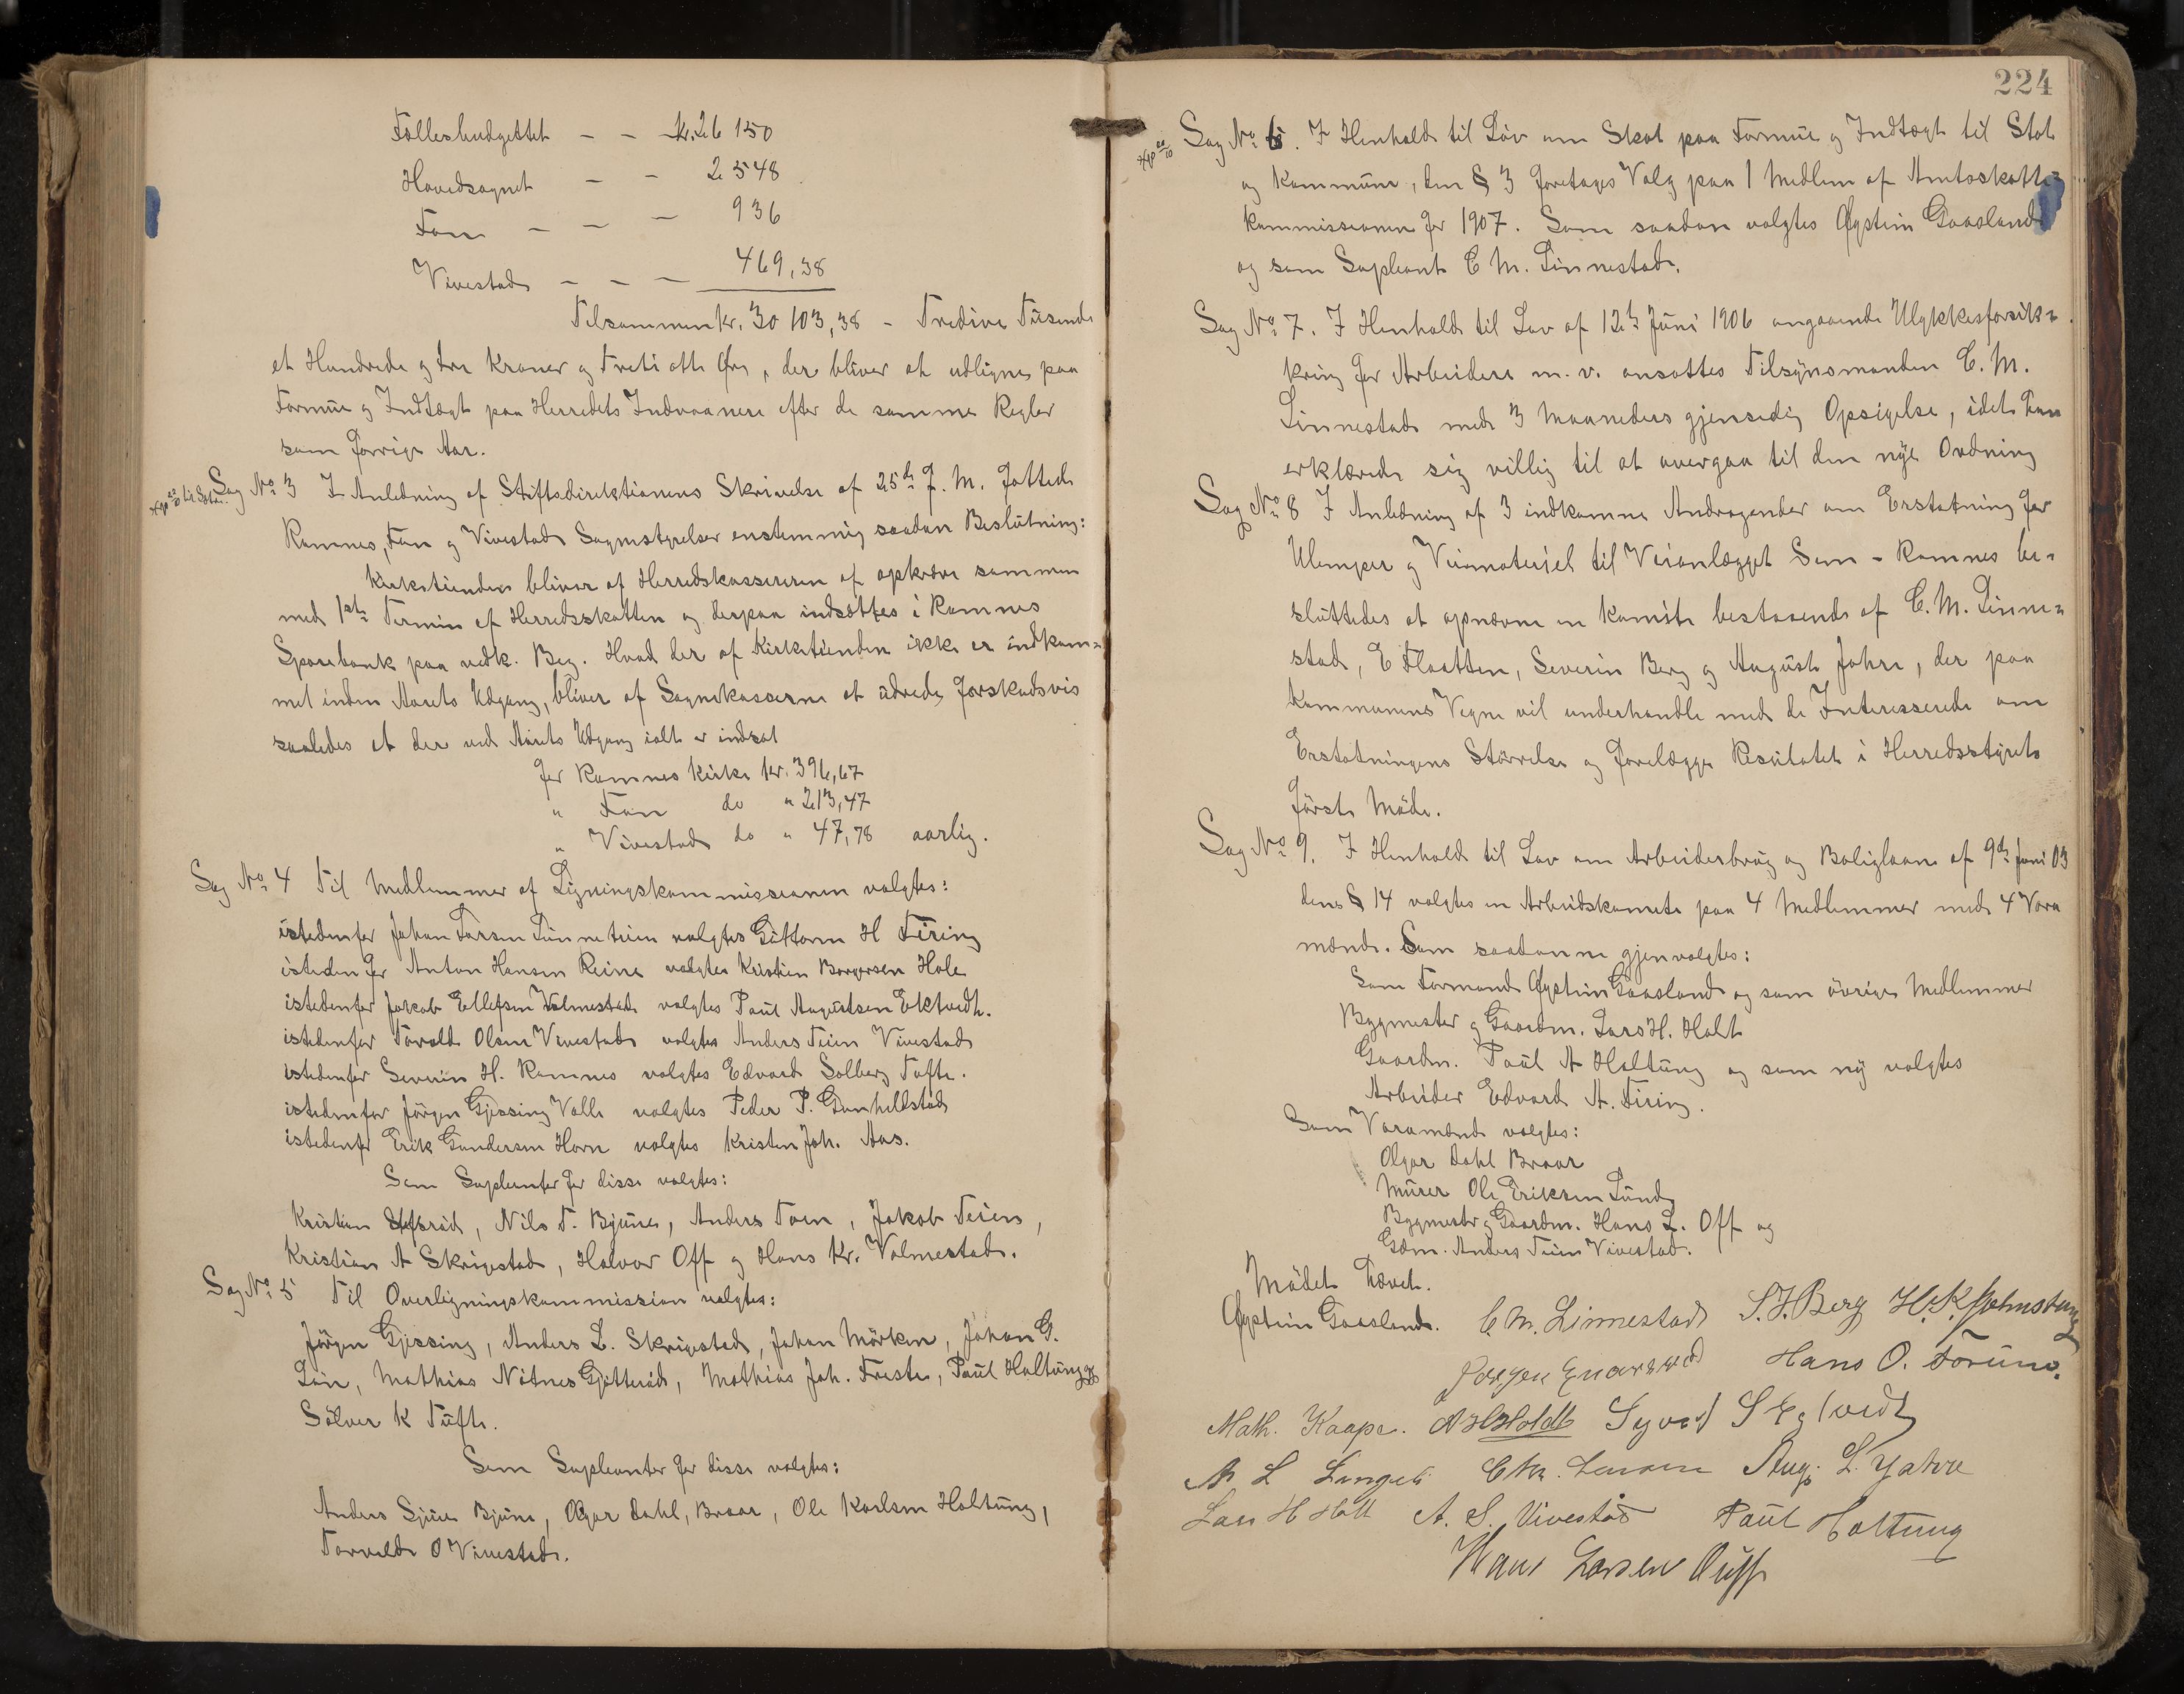 Fællesbudgettet — — Kr. 26 150
Hovedsognet — — 2 548
Fon — — — 936
Vivestad — — — 469,38
Tilsammen Kr. 30 103,38 - Tredive Tusende
et Hundrede og tre Kroner og Treti otte Øre, der bliver at udligne paa
Formue og Indtægt paa Herredets Indvaanere efter de samme Regler
som forrige Aar.
Sag No 3 I Anledning af Stiftsdirektionens Skrivelse af 25de f. M. fattede
Ramnes, Fon og Vivestads Sognestyrelser enstemmig saadan Beslutning:
Kirketienden bliver af Herredskassereren at opkræve sammen
med 1ste Termin af Herredsskatten og derpaa indsættes i Ramnes
Sparebank paa vedk. Beg. Hvad der af Kirketienden ikke er indkom-
met inden Aarets Udgang, bliver af Sognekasserne at udrede forskudsvis
saaledes at der ved Aarets Udgang ialt er indsat
for Ramnes Kirke Kr. 396,67
" Fon do " 213,47
" Vivestad do " 47,78 aarlig.
Sag No 4 Til Medlemmer af Ligningskommissionen valgtes:
istedenfor Johan Larsen Linnestien valgtes Guttorm H Firing
isteden for Anton Hansen Reine valgtes Kristian Borgersen Hole
istedenfor Jakob Ellefsen Valmestad valgtes Paul Augustsen Ektvedt.
istedenfor Torvald Olsen Vivestad valgtes Anders Teien Vivestad
istedenfor Severin H. Ramnes valgtes Edvard Solberg Tufte.
istedenfor Jörgen Gjessing Valle valgtes Peder P. Gunhellstad
istedenfor Erik Gundersen Horn valgtes Kristen Joh. Aas.
Som Supleanter for disse valgtes:
Kristian, Nils T. Bjune, Anders Foen, Jakob Teien,
Kristian A Skrigestad, Halvor Off og Hans Kr. Valmestad.
Sag No 5 Til Overligningskommission valgtes:
Jörgen Gjessing, Anders L. Skrigestad, Johan Mörken, Johan G.
Lön, Mathias Nötnes Gjötterud, Mathias Joh. Freste, Paul Holtung og
Sölver K Tufte.
Som Supleanter for disse valgtes:
Anders Sjue Bjune, Olgar Dahl, Braar, Ole Karlsen Holtung,
Torvald O Vivestad.
224
Sag No 6. I Henhold til Lov om Skat paa Formue og Indtægt til Stat
og Kommune, dens § 3 foretages Valg paa 1 Medlem af Amtsskatte-
kommissionen for 1907. Som saadan valgtes Øystein Gaasland
og som Supleant C. M. Linnestad.
Sag No 7. I Henhold til Lov af 12te Juni 1906 angaaende Ulykkesforsik-
kring for Arbeidere m. v. ansattes Tilsynsmanden C. M.
Linnestad med 3 Maaneders gjensidig Opsigelse, idet han
erklærede sig villig til at overgaa til den nye Ordning
Sag No 8 I Anledning af 3 indkomne Andragender om Erstatning for
Ulemper og Veimateriel til Veianlægget Sem - Ramnes be-
sluttedes at opnævne en Komite bestaaende af C. M. Linne-
stad, E Flaatten, Severin Berg og August Jahre, der paa
Kommunens Vegne vil underhandle med de Interesserede om
Erstatningens Störrelse og forelægge Resultatet i Herredsstyrets
först Möde.
Sag No 9. I Henhold til Lov om Arbeiderbrug og Boliglaan af 9de Juni 03
dens § 14 valgtes en Arbeidskomite paa 4 Medlemmer med 4 Vara
mænd. Som saadanne gjenvalgtes:
Som Formand Øystein Gaasland og som övrige Medlemmer
Bygmester og Gaardm. Lars H. Holt
Gaardm. Paul A Holtung og som ny valgtes
Arbeider Edvard A. Firing.
Som Varamænd valgtes:
Olgar Dahl Braar
Murer Ole Eriksen Lund
Bygmester og Gaardm. Hans L. Off og
Gdm. Anders Teien Vivestad.
Mödet hævet.
Øystein Gaasland. C. M. Linnestad S. J. Berg H. K. Hjelmstang
Jørgen Enarsrød Hans O. Forune.
Math. Kaape. A H Holdt Syver S Egtvedt
A L Lingelu Chr. Larsen Aug. L. Jahre
Lars H Holt A. S. Vivestad Paul Holtung
Hans Larsen Auff